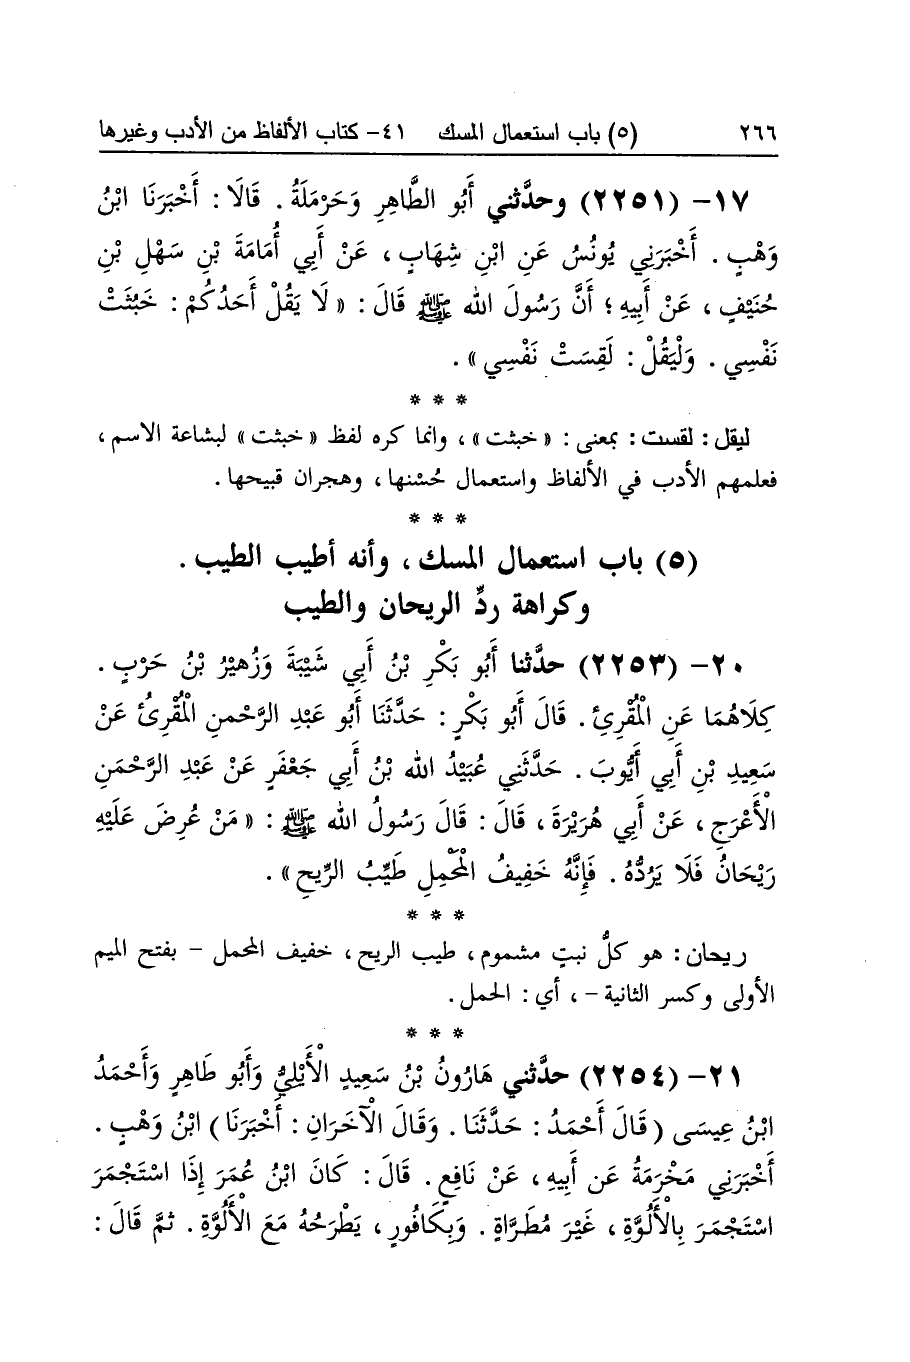 ٢٦٦ (٥) باب استعمال المسك ٤١- كتاب الألفاظ من الأدب وغيرها
١٧- (٢٢٥١) وحدَّثني أَبُو الطَّاهِرِ وَحَرْمَلَةُ . قَالَا : أَخْبَرَنَا ابْنُ
وَهْبٍ . أَخْبَرَنِي يُونُسُ عَنِ ابْنِ شِهَابٍ ، عَنْ أَبِي أُمَامَةَ بْنِ سَهْلِ بْنِ
حُنَيْفٍ ، عَنْ أَبِيهِ ؛ أَنَّ رَسُولَ الله ﷺ قَالَ : « لَا يَقُلْ أَحَدُكُمْ : خَبُثَتْ
نَفْسِي . وَلْيَقُلْ : لَقِسَتْ نَفْسِي » .
* * *
ليقل : لقست : بمعنى : « خبثت » ، وانما كره لفظ « خبثت » لبشاعة الاسم ،
فعلمهم الأدب في الألفاظ واستعمال حُسْنها ، وهجران قبيحها .
* * *
(٥) باب استعمال المسك ، وأنه أطيب الطيب .
وكراهة ردِّ الريحان والطيب
٢٠- (٢٢٥٣) حدَّثنا أَبُو بَكْرِ بْنُ أَبِي شَيْبَةَ وَزُهَيْرُ بْنُ حَرْبٍ .
كِلَاهُمَا عَنِ الْمُقْرِئِ . قَالَ أَبُو بَكْرٍ : حَدَّثَنَا أَبُو عَبْدِ الرَّحْمنِ الْمُقْرِئُ عَنْ
سَعِيدِ بْنِ أَبِي أَيُّوبَ . حَدَّثَنِي عُبَيْدُ الله بْنُ أَبِي جَعْفَرٍ عَنْ عَبْدِ الرَّحْمَنِ
الْأَعْرَجِ ، عَنْ أَبِي هُرَيْرَةَ ، قَالَ : قَالَ رَسُولُ الله ﷺ : « مَنْ عُرِضَ عَلَيْهِ
رَيْحَانٌ فَلَا يَرُدُّهُ . فَإِنَّهُ خَفِيفُ الْمَحْمِلِ طَيِّبُ الرِّيحِ » .
* * *
ريحان : هو كلُّ نبتٍ مشموم ، طيب الريح ، خفيف المحمل – بفتح الميم
الأولى وكسر الثانية – ، أي : الحمل .
* * *
٢١- (٢٢٥٤) حدَّثني هَارُونُ بْنُ سَعِيدٍ الْأَيْلِيُّ وَأَبُو طَاهِرٍ وَأَحْمَدُ
ابْنُ عِيسَى ( قَالَ أَحْمَدُ : حَدَّثَنَا . وَقَالَ الْآخَرَانِ : أَخْبَرَنَا ) ابْنُ وَهْبٍ .
أَخْبَرَنِي مَخْرَمَةُ عَن أَبِيهِ ، عَنْ نَافِعٍ . قَالَ : كَانَ ابْنُ عُمَرَ إِذَا اسْتَجْمَرَ
اسْتَجْمَرَ بِالْأَلُوَّةِ ، غَيْرَ مُطَرَّاةٍ . وَبِكَافُورٍ ، يَطْرَحُهُ مَعَ الْأَلُوَّةِ . ثمَّ قَالَ :